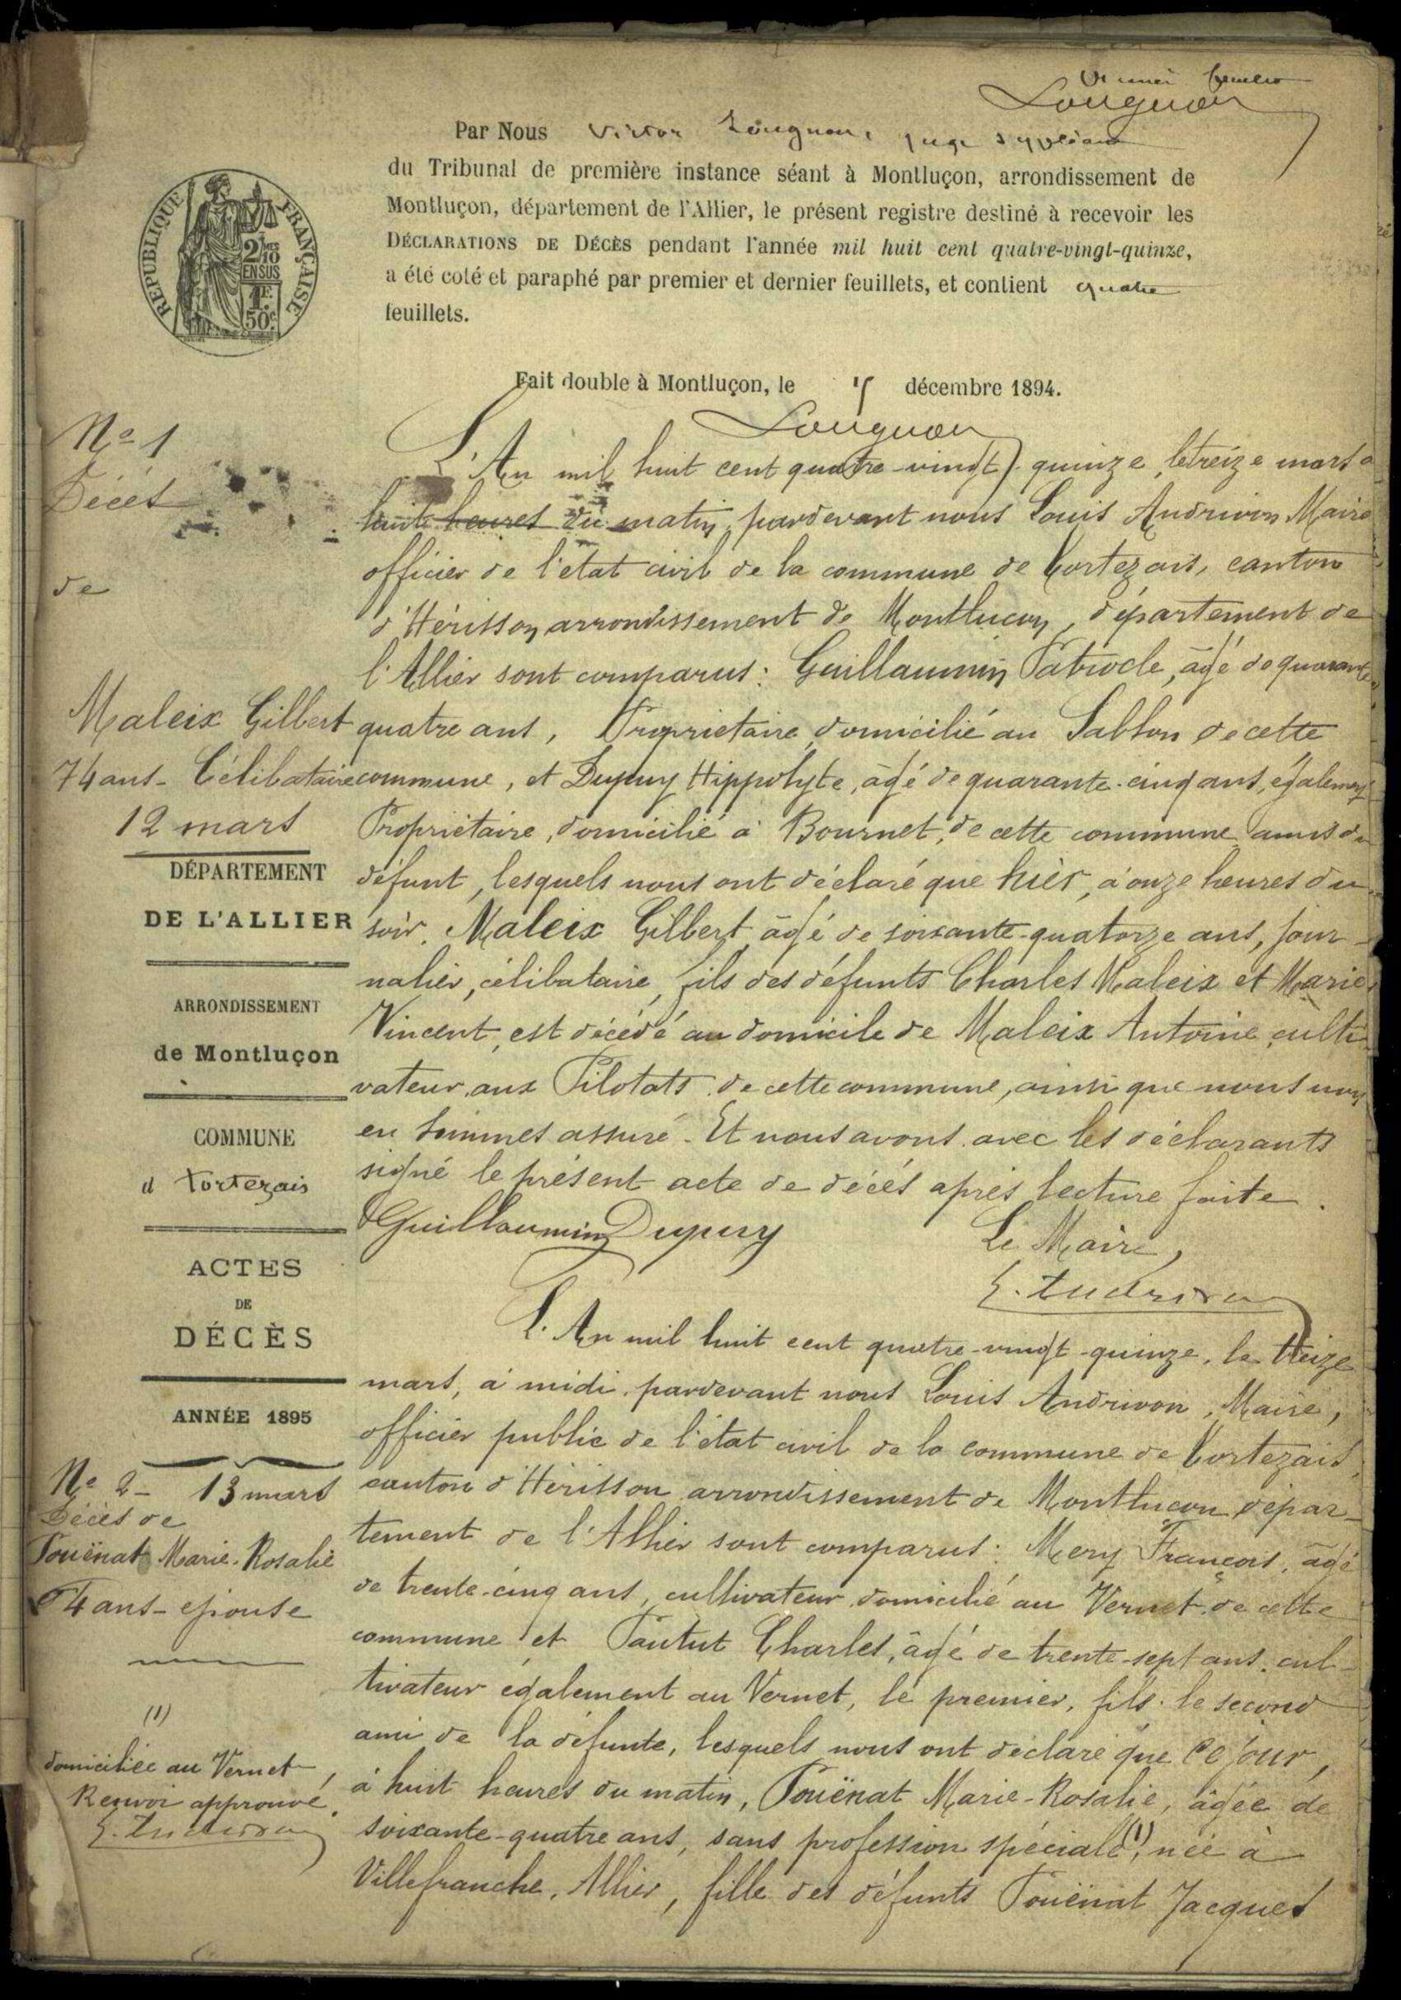 Lougnon
Par Nous Victor Lougnon, juge suppléant
du Tribunal de première instance séant à Montluçon, arrondissement de
Montluçon, département de l'Allier, le présent registre destiné à recevoir les
DÉCLARATIONS DE DÉCÈS pendant l'année mil huit cent quatre-vingt-quinze,
a été coté et paraphé par premier et dernier feuillets, et contient quatre
feuillets.
RÉPUBLIQUE FRANÇAISE
2/10 EN SUS
1F. 50c
Fait double à Montluçon, le 15 décembre 1894.
Lougnon
No 1
Décès
de
Maleix Gilbert
74 ans - Célibataire
12 mars
DÉPARTEMENT
DE L'ALLIER
ARRONDISSEMENT
de Montluçon
COMMUNE
d Tortezais
ACTES
DE
DÉCÈS
ANNÉE 1895
L'An mil huit cent quatre-vingt-quinze, le treize mars à
huit heures du matin, pardevant nous Louis Andrivon Maire
officier de l'état civil de la commune de Tortezais, canton
d'Hérisson, arrondissement de Montluçon, département de
l'Allier sont comparus: Guillaumin Patrocle, âgé de quarante
quatre ans, Propriétaire, domicilié au Sablon de cette
commune, et Dupuy Hippolyte, âgé de quarante-cinq ans, également
Propriétaire, domicilié à Bournet, de cette commune, amis du
défunt, lesquels nous ont déclaré que hier, à onze heures du
soir, Maleix Gilbert, âgé de soixante-quatorze ans, jour-
nalier, célibataire, fils des défunts Charles Maleix et Marie
Vincent, est décédé au domicile de Maleix Antoine, culti-
vateur, aux Pilotats de cette commune, ainsi que nous nous
en sommes assuré. Et nous avons avec les déclarants
signé le présent acte de décès après lecture faite.
Guillaumin Dupuy Le Maire,
L. Andrivon
No 2 - 13 mars
Décès de
Touënat Marie-Rosalie
64 ans - épouse
L'An mil huit cent quatre-vingt-quinze, le treize
mars, à midi, pardevant nous Louis Andrivon, Maire,
officier public de l'état civil de la commune de Tortezais,
canton d'Hérisson arrondissement de Montluçon, dépar-
tement de l'Allier sont comparus: Mery François, âgé
de trente-cinq ans, cultivateur, domicilié au Vernet, de cette
commune et Tautut Charles, âgé de trente-sept ans, cul-
tivateur également au Vernet, le premier, fils, le second
ami de la défunte, lesquels nous ont déclaré que ce jour,
à huit heures du matin, Touënat Marie-Rosalie, âgée de
soixante-quatre ans, sans profession spéciale (1), née à
Villefranche, Allier, fille des défunts Touënat Jacques
(1)
domiciliée au Vernet,
Renvoi approuvé,
L. Andrivon